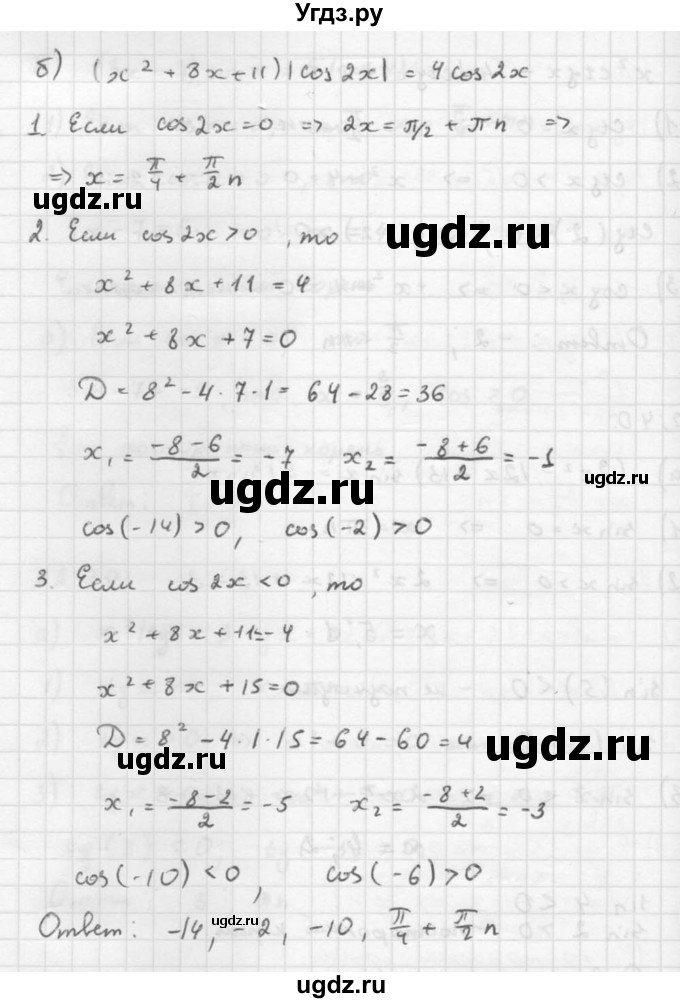 Угдз.ру
б) (x² + 8x + 11) |cos 2x| = 4 cos 2x
1. Если cos 2x = 0 => 2x = π/2 + πn =>
=> x = π/4 + π/2 n
ugdz.ru
2. Если cos 2x > 0, то
ugdz.ru
x² + 8x + 11 = 4
x² + 8x + 7 = 0
D = 8² - 4 · 7 · 1 = 64 - 28 = 36
x₁ = (-8 - 6)/2 = -7 x₂ = (-8 + 6)/2 = -1
ugdz.ru
ugdz.ru
cos(-14) > 0, cos(-2) > 0
3. Если cos 2x < 0, то
x² + 8x + 11 = -4
x² + 8x + 15 = 0
D = 8² - 4 · 1 · 15 = 64 - 60 = 4
ugdz.ru
ugdz.ru
x₁ = (-8 - 2)/2 = -5 x₂ = (-8 + 2)/2 = -3
cos(-10) < 0, cos(-6) > 0
ugdz.ru
ugdz.ru
Ответ: -14, -2, -10, π/4 + π/2 n
ugdz.ru